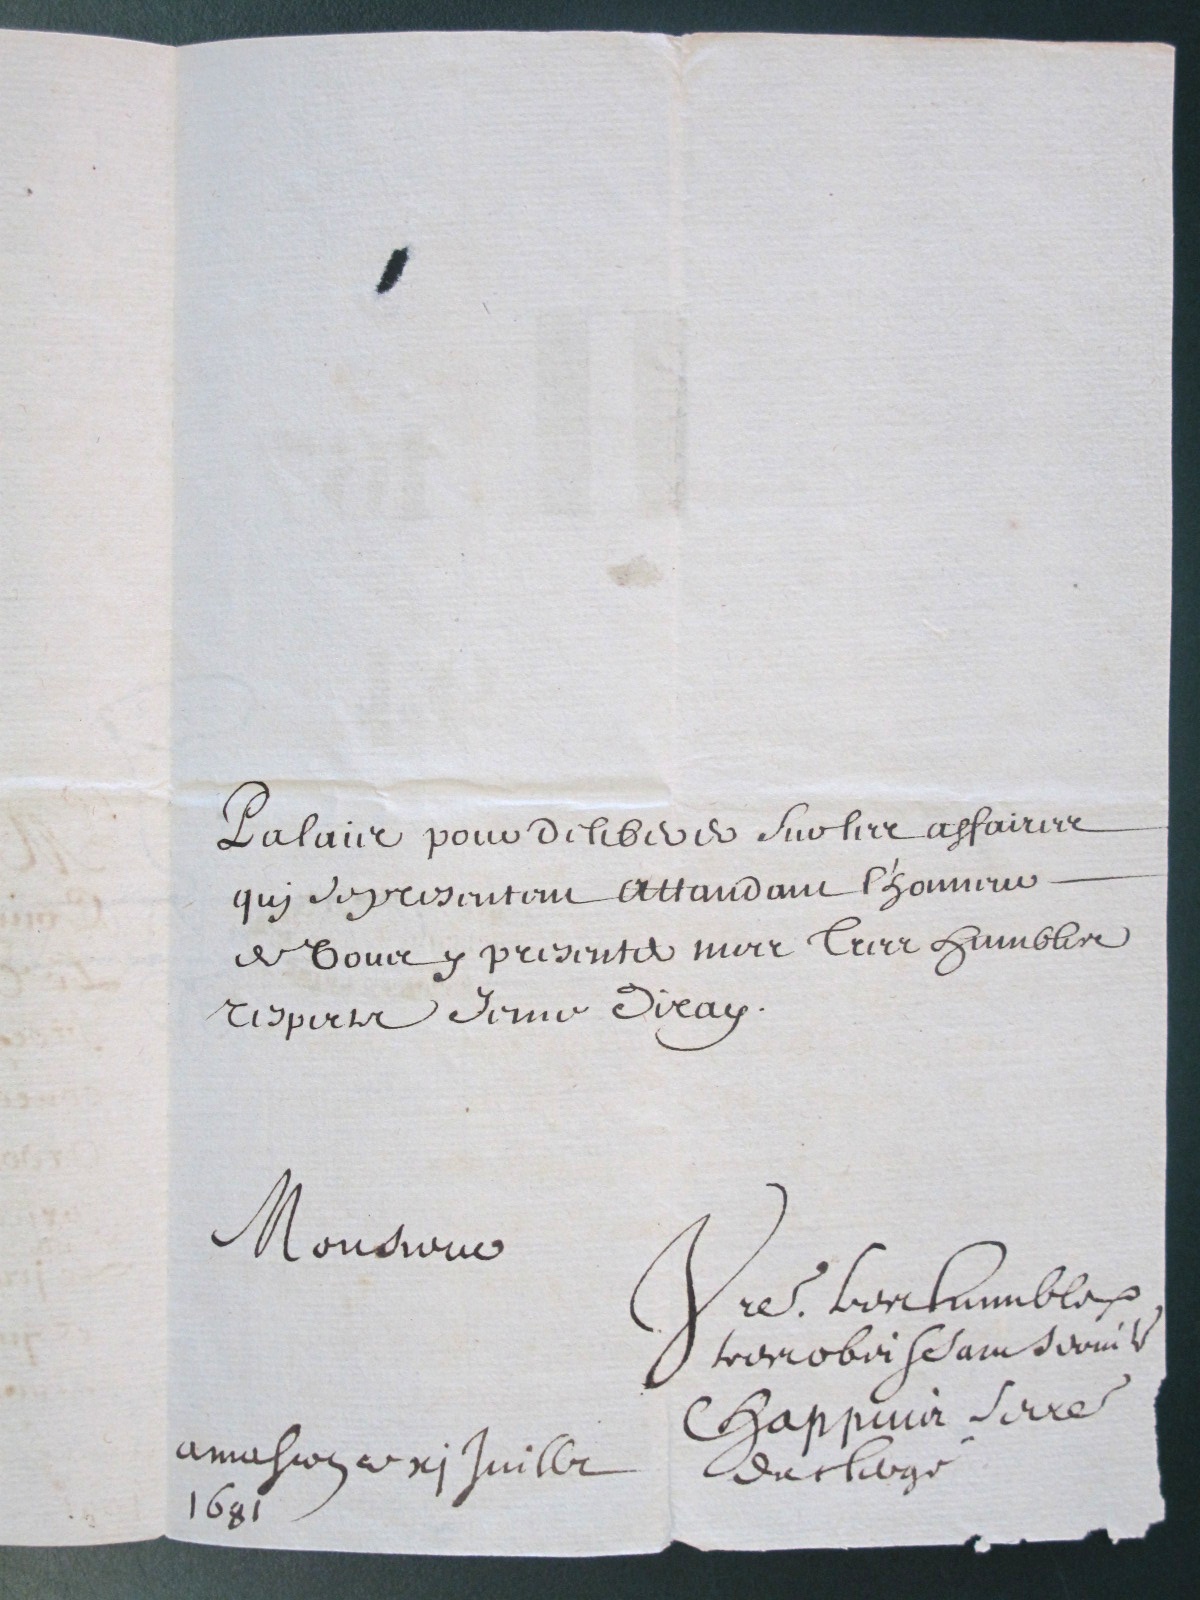 Palais pour deliberer sur les affaires
qui se presentent Attandant l'honneur
de vous y presenter mes tres humbles
respects Je me diray.
Monsieur
Vre. tres humble et
tres obeissant servit.
Chappuis secre
du clergé
a mascon ce xj Juillet
1681